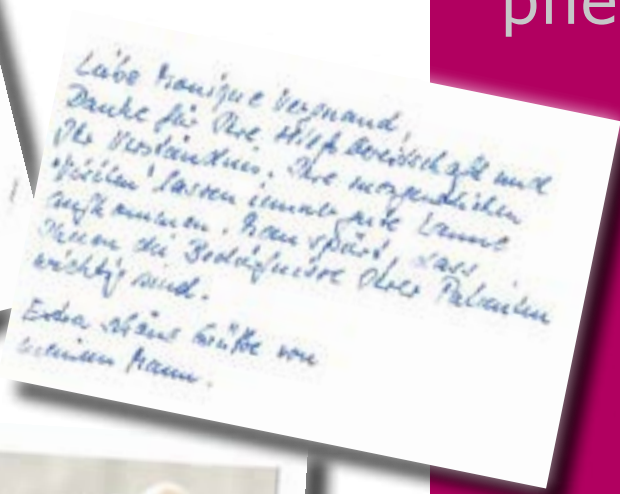 phe
Liebe Monique Vergnand,
Danke für Ihre Hilfsbereitschaft und
Ihr Verständnis. Ihre morgendlichen
lassen immer gute Laune
aufkommen. Man spürt, dass
Ihnen die Bedürfnisse Ihrer Patienten
wichtig sind.
Extra schöne Grüße von
meinem Mann.